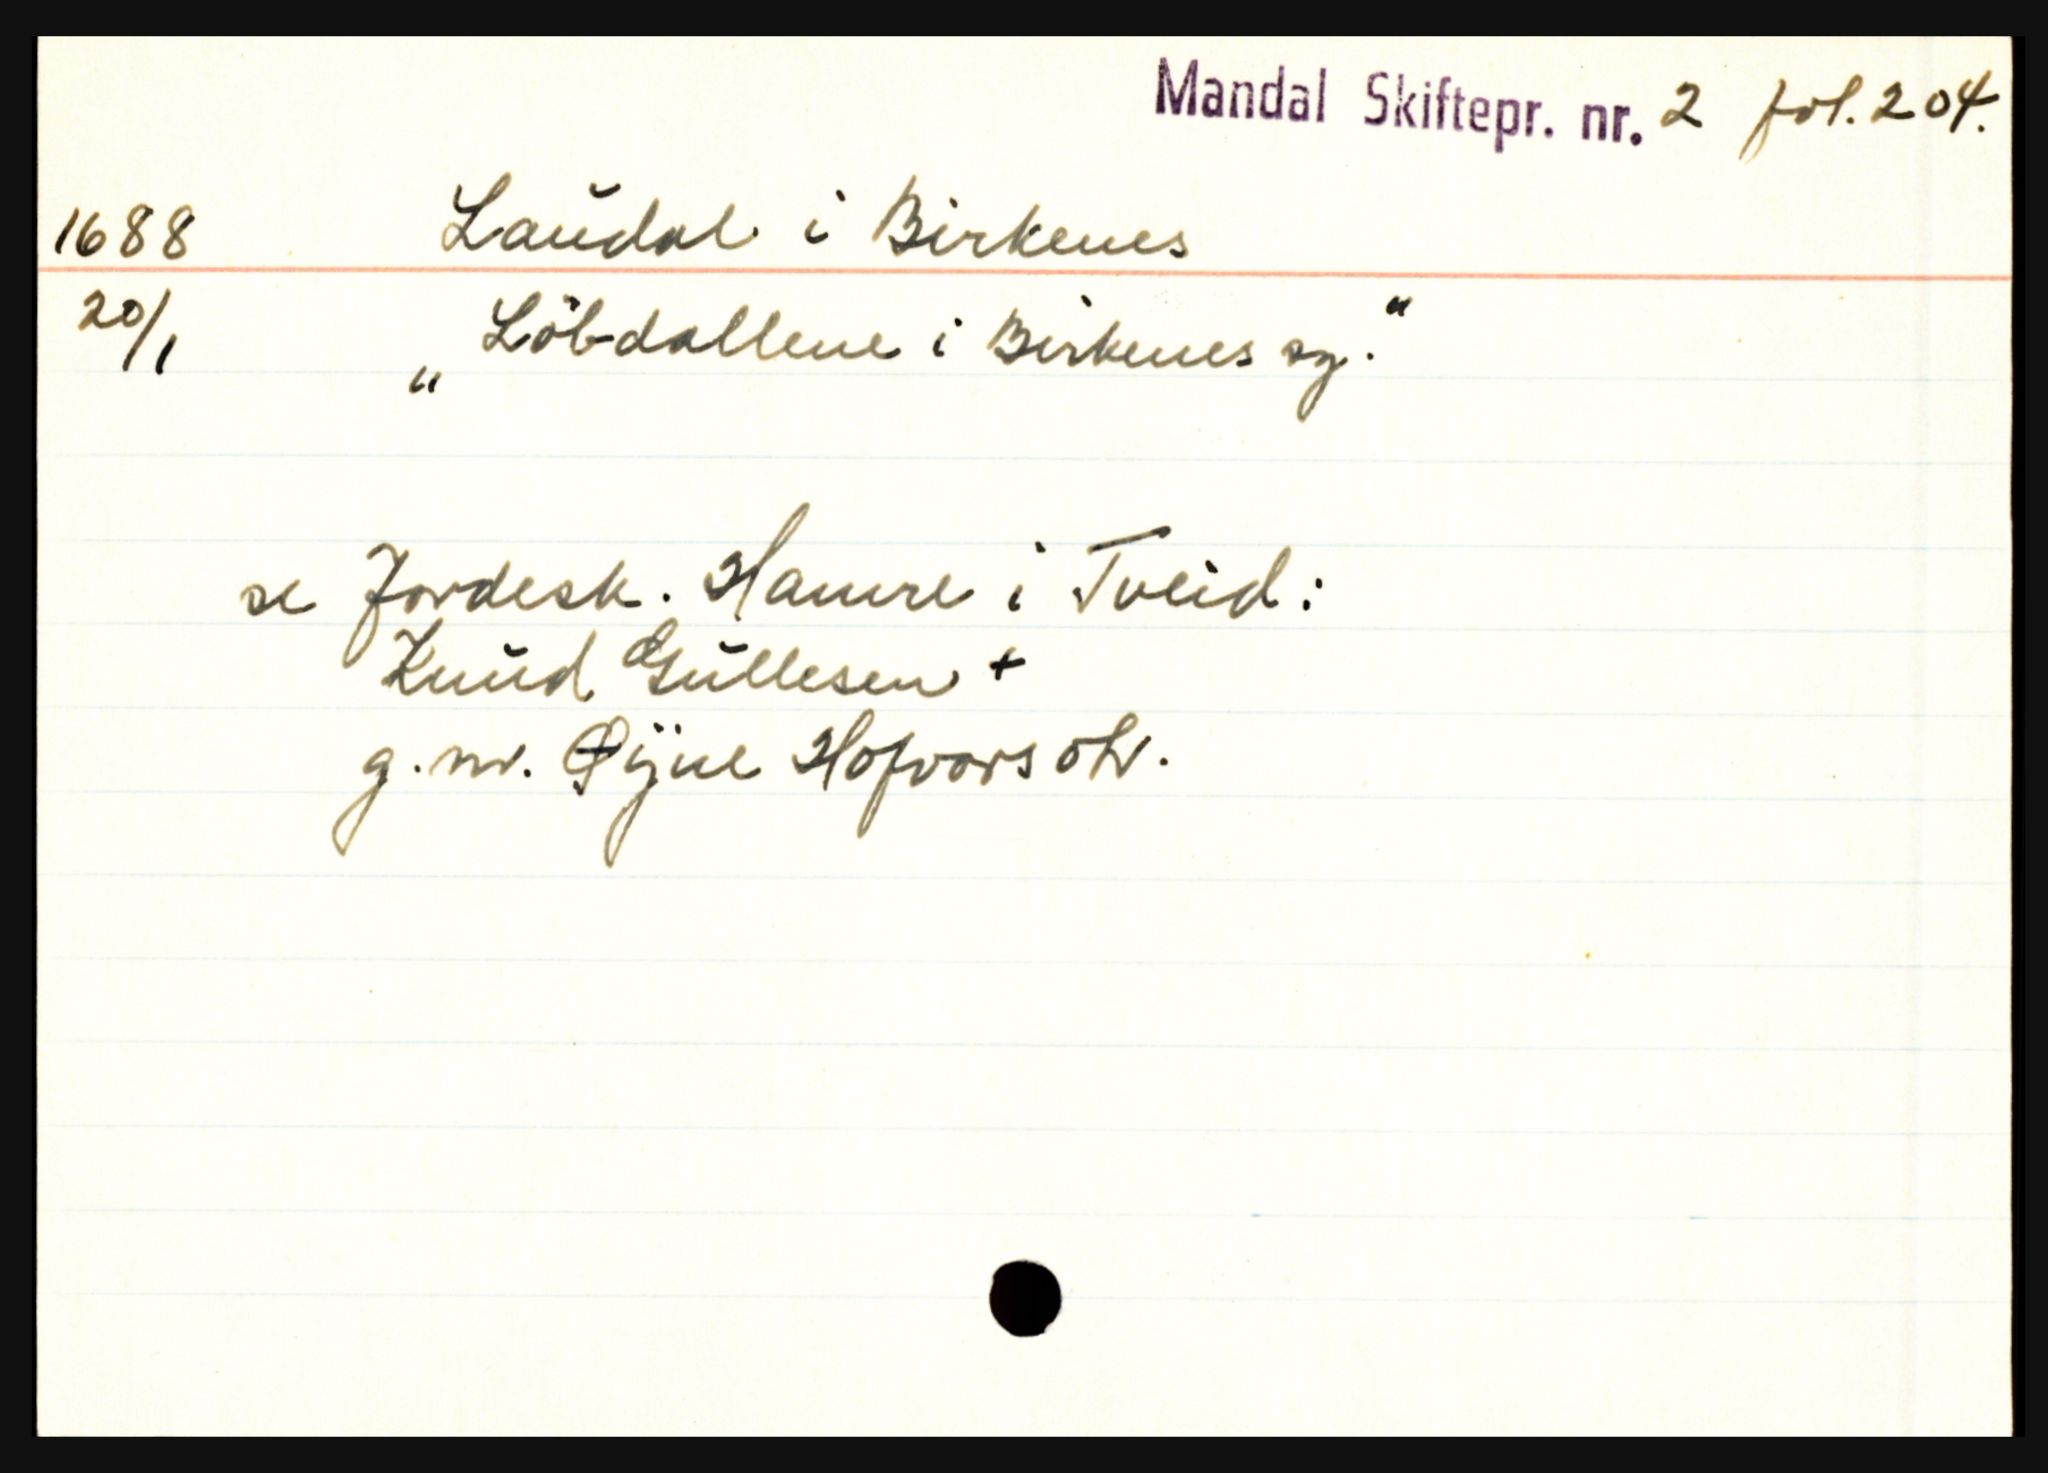 Mandal Skiftepr. nr. 2 fol. 204.
1688 Laudal i Birkenes
20/1 „Löbdallene i Birkenes sg.“
se Jordesk. Hamre i Tveid:
Knud Gullesen +
g.m. Øÿne Hofvors dtr.